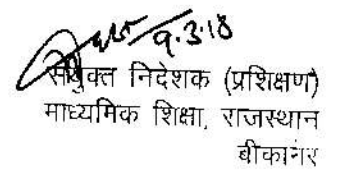 9.3.18
संयुक्त निदेशक (प्रशिक्षण)
माध्यमिक शिक्षा, राजस्थान
बीकानेर